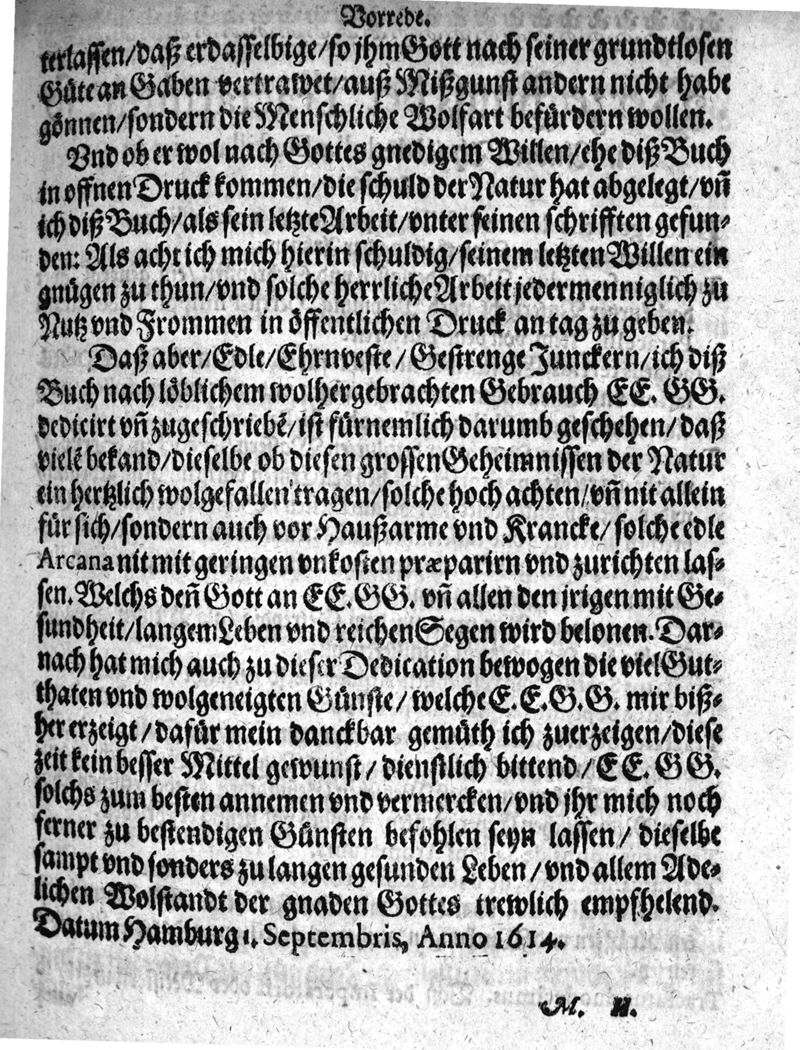 Vorrede.
terlassen/daß er dasselbige/so jhm Gott nach seiner grundtlosen
Güte an Gaben vertrawet/auß Mißgunst andern nicht habe
gönnen/sondern die Menschliche Wolfart befürdern wollen.
Vnd ob er wol nach Gottes gnedigem Willen/ehe diß Buch
in offnen Druck kommen/die schuld der Natur hat abgelegt/vñ
ich diß Buch/als sein letzte Arbeit/vnter seinen schrifften gefun-
den: Als acht ich mich hierin schuldig/seinem letzten Willen ein
gnügen zu thun/vnd solche herrliche Arbeit jedermenniglich zu
Nutz vnd Frommen in öffentlichen Druck an tag zu geben.
Daß aber/Edle/Ehrnveste/Gestrenge Junckern/ich diß
Buch nach löblichem wolhergebrachten Gebrauch EE. GG.
dedicirt vñ zugeschriebẽ/ist fürnemlich darumb geschehen/daß
vielẽ bekand/dieselbe ob diesen grossen Geheimnissen der Natur
ein hertzlich wolgefallen tragen/solche hoch achten/vñ nit allein
für sich/sondern auch vor Haußarme vnd Krancke/solche edle
Arcana nit mit geringen vnkosten præparirn vnd zurichten las-
sen. Welchs deñ Gott an EE. GG. vñ allen den jrigen mit Ge-
sundheit/langem Leben vnd reichen Segen wird belonen. Dar-
nach hat mich auch zu dieser Dedication bewogen die viel Gut-
thaten vnd wolgeneigten Günste/welche E. E. G. G. mir biß-
her erzeigt/dafür mein danckbar gemüth ich zuerzeigen/diese
zeit kein besser Mittel gewunst/dienstlich bittend/EE. GG.
solchs zum besten annemen vnd vermercken/vnd jhr mich noch
ferner zu bestendigen Günsten befohlen seyn lassen/dieselbe
sampt vnd sonders zu langen gesunden Leben/vnd allem Ade-
lichen Wolstandt der gnaden Gottes trewlich empfhelend.
Datum Hamburg 1. Septembris, Anno 1614.
M. H.